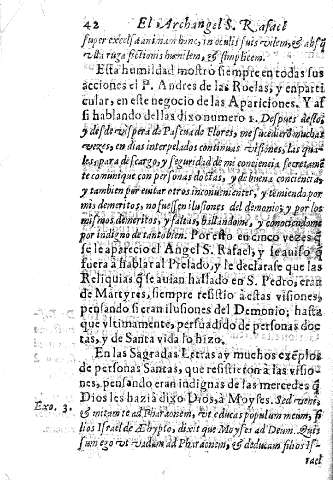 42 El Archangel S. Rafael
super excelsã animam hinc, in oculis suis vilem, & absq;
ulla ruga fictionis humilem, & simplicem.
Esta humildad mostrò siempre en todas sus
acciones el P. Andres de las Roelas, y en parti
cular, en este negocio de las Apariciones. Y as
si hablando dellas dixo numero 1. Despues desto,
y desde vispera de Pascua de Flores, me sucedierõ muchas
vezes, en dias interpelados continuas visiones, las qua-
les, para descargo, y seguridad de mi conciencia, secretamẽ
te comunique con personas doctas, y de buena conciencia,
y tambien por evitar otros inconvinientes, y temiendo por
mis demeritos, no fuessen ilusiones del demonio; y por los
mismos demeritos, y faltas, hallandome, y conociendome
por indigno de tanto bien. Por esto en cinco vezes q̃
se le apareciò el Angel S. Rafael, y le avisò q̃
fuera à hablar al Prelado, y le declarase que las
Reliquias q̃ se avian hallado en S. Pedro, eran
de Martyres, siempre resistiò à estas visiones,
pensando si eran ilusiones del Demonio; hasta
que vltimamente, persuadido de personas doc
tas, y de Santa vida lo hizo.
En las Sagradas Letras ay muchos exẽplos
de personas Santas, que resistieron à las visio-
nes, pensando eran indignas de las mercedes q̃
Dios les hazia dixo Dios, à Moyses. Sed veni,
Exo. 3. & mitam te ad Pharaonem, vt educas populum meum, fi
lios Israel de Ægypto, dixit que Moyses ad Deum. Quis
sum ego vt vadam ad Pharaonem, & educam filios Is-
rael